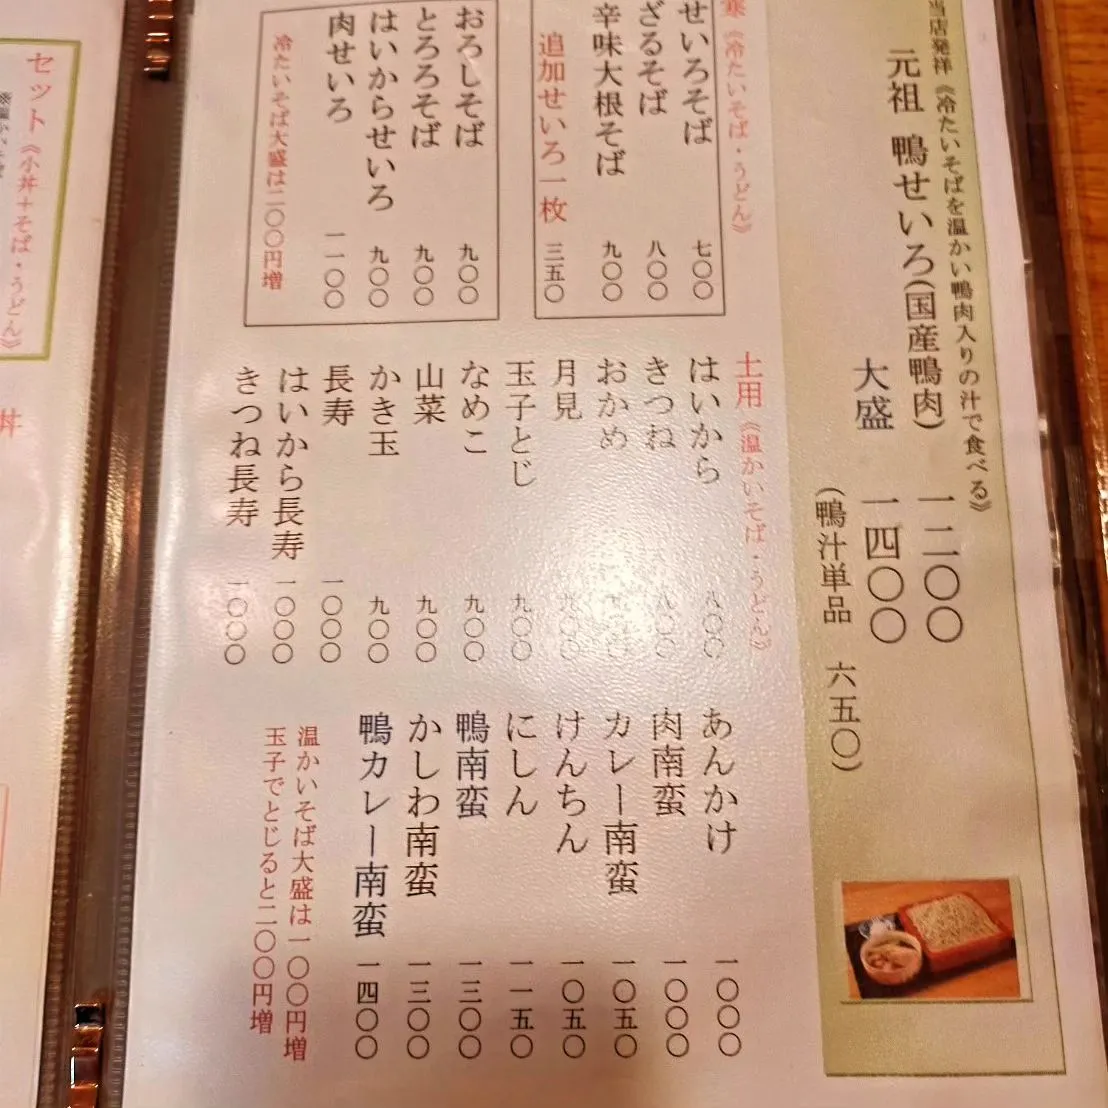 当店発祥《冷たいそばを温かい鴨肉入りの汁で食べる》
元祖 鴨せいろ(国産鴨肉) 一二〇〇
大盛 一四〇〇
(鴨汁単品 六五〇)
《冷たいそば・うどん》
せいろそば 七〇〇
ざるそば 八〇〇
辛味大根そば 九〇〇
追加せいろ一枚 三五〇
おろしそば 九〇〇
とろろそば 九〇〇
はいからせいろ 九〇〇
肉せいろ 一一〇〇
冷たいそば大盛は二〇〇円増
土用《温かいそば・うどん》
はいから 八〇〇
きつね 八〇〇
おかめ
月見 九〇〇
玉子とじ 九〇〇
なめこ 九〇〇
山菜 九〇〇
かき玉 九〇〇
長寿 一〇〇〇
はいから長寿 一〇〇〇
きつね長寿 一〇〇〇
あんかけ 一〇〇〇
肉南蛮 一〇〇〇
カレー南蛮 一〇五〇
けんちん 一〇五〇
にしん 一一五〇
鴨南蛮 一三〇〇
かしわ南蛮 一三〇〇
鴨カレー南蛮 一四〇〇
温かいそば大盛は一〇〇円増
玉子でとじると二〇〇円増
セット《小丼+そば・うどん》
丼